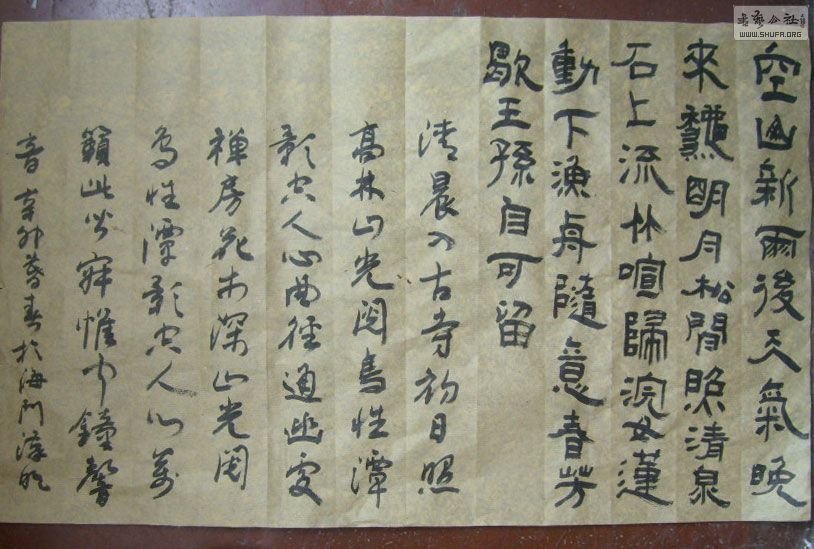 空山新雨後天氣晚
來龝明月松間照清泉
石上流竹喧歸浣女蓮
動下漁舟隨意春芳
歇王孫自可留
清晨入古寺初日照
高林山光閱鳥性潭
影空人心曲徑通幽處
禅房花木深山光閱
鳥性潭影空人心萬
籟此皆寂惟聞鐘磬
音 辛卯暮春於海門
書藝公社
WWW.SHUFA.ORG